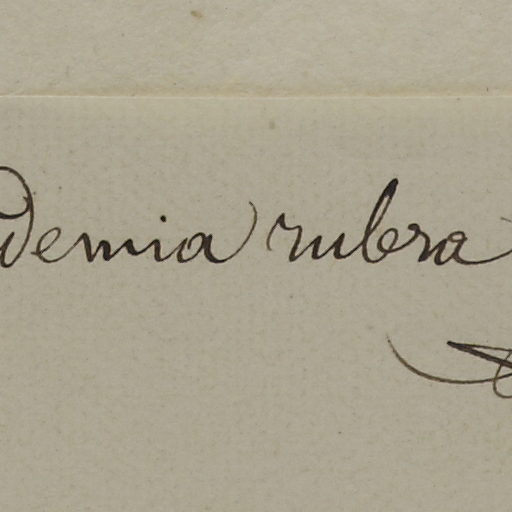 Demia rubra